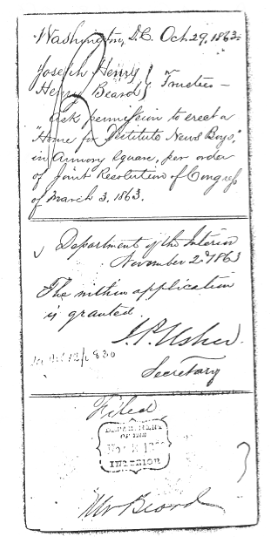 Washington, D.C. Oct. 29, 1863.
Joseph Henry
Henry Beard } Trustees —
Ask permission to erect a
"Home for Destitute News Boys,"
in Armory Square, per order
of Joint Resolution of Congress
of March 3, 1863.
Department of the Interior
November 2d 1863
The within application
is granted.
J. P. Usher.
Secretary
Filed
INTERIOR
Mr Beard